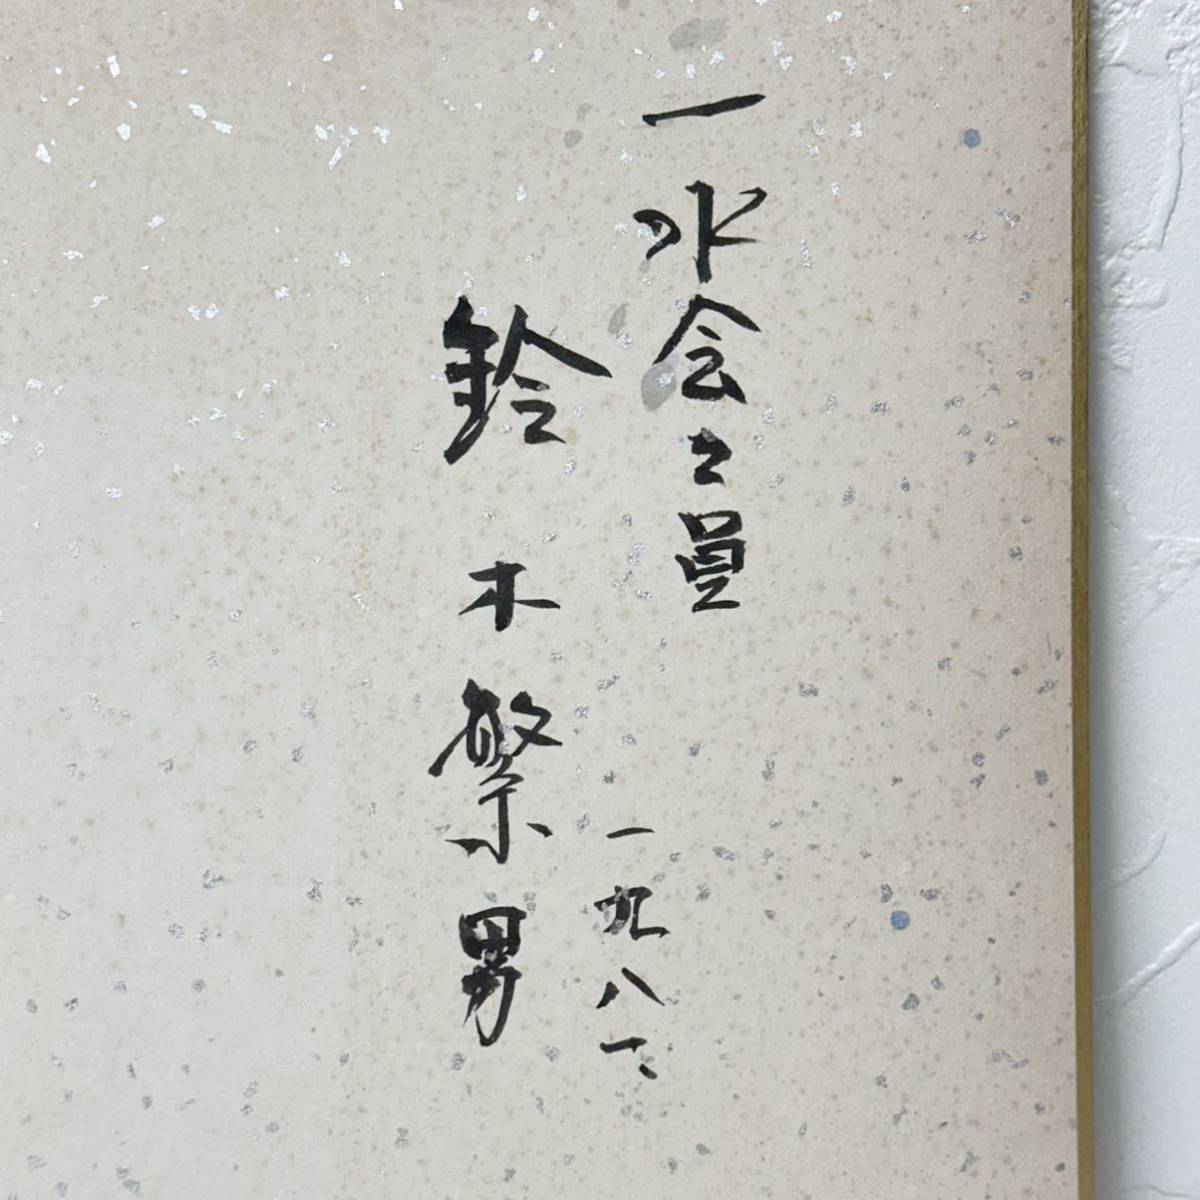 一水会々員
一九八一、
鈴木繁男